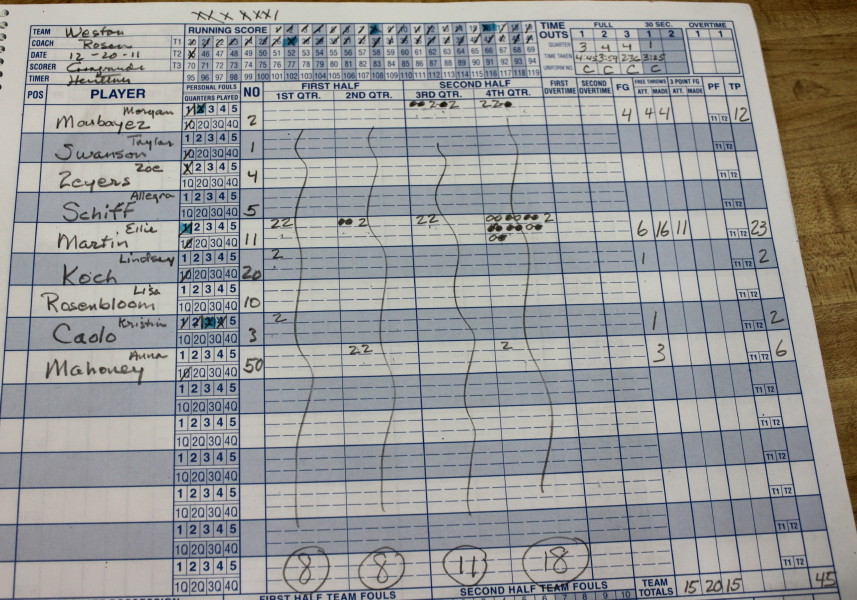 XX X XXX/
TEAM Weston RUNNING SCORE TIME OUTS FULL 30 SEC. OVERTIME
COACH Rosen T1 1 2 3 1 2 1 1
DATE 12-20-11 T2 46 47 48 49 50 51 52 53 54 55 56 57 58 59 60 61 62 63 64 65 66 67 68 69 QUARTER 3 4 4 1
SCORER T3 70 71 72 73 74 75 76 77 78 79 80 81 82 83 84 85 86 87 88 89 90 91 92 93 94 TIME TAKEN
TIMER 95 96 97 98 99 100 101 102 103 104 105 106 107 108 109 110 111 112 113 114 115 116 117 118 119 UNIFORM NO. C C C C
POS PLAYER PERSONAL FOULS QUARTERS PLAYED NO FIRST HALF 1ST QTR. 2ND QTR. SECOND HALF 3RD QTR. 4TH QTR. FIRST OVERTIME SECOND OVERTIME FG FREE THROWS ATT. MADE 3 POINT FG ATT. MADE PF TP
Morgan Moubayez 1 2 3 4 5 10 20 30 40 2 4 4 4 T1 T2 12
Taylor Swanson 1 2 3 4 5 10 20 30 40 1 T1 T2
Zoe Zeyers X 2 3 4 5 10 20 30 40 4 T1 T2
Allegra Schiff 1 2 3 4 5 10 20 30 40 5 T1 T2
Ellie Martin 1 2 3 4 5 10 20 30 40 11 22 2 22 2 6 16 11 T1 T2 23
Lindsay Koch 1 2 3 4 5 10 20 30 40 20 2 1 T1 T2 2
Lisa Rosenbloom 1 2 3 4 5 10 20 30 40 10 T1 T2
Kristin Caolo 1 2 3 4 5 10 20 30 40 3 2 1 T1 T2 2
Anna Mahoney 1 2 3 4 5 10 20 30 40 50 22 2 3 T1 T2 6
1 2 3 4 5 10 20 30 40 T1 T2
1 2 3 4 5 10 20 30 40 T1 T2
1 2 3 4 5 10 20 30 40 T1 T2
1 2 3 4 5 10 20 30 40 T1 T2
1 2 3 4 5 10 20 30 40 T1 T2
1 2 3 4 5 10 20 30 40 8 8 11 18 T1 T2
FIRST HALF TEAM FOULS SECOND HALF TEAM FOULS 7 8 9 10 TEAM TOTALS 15 20 15 45